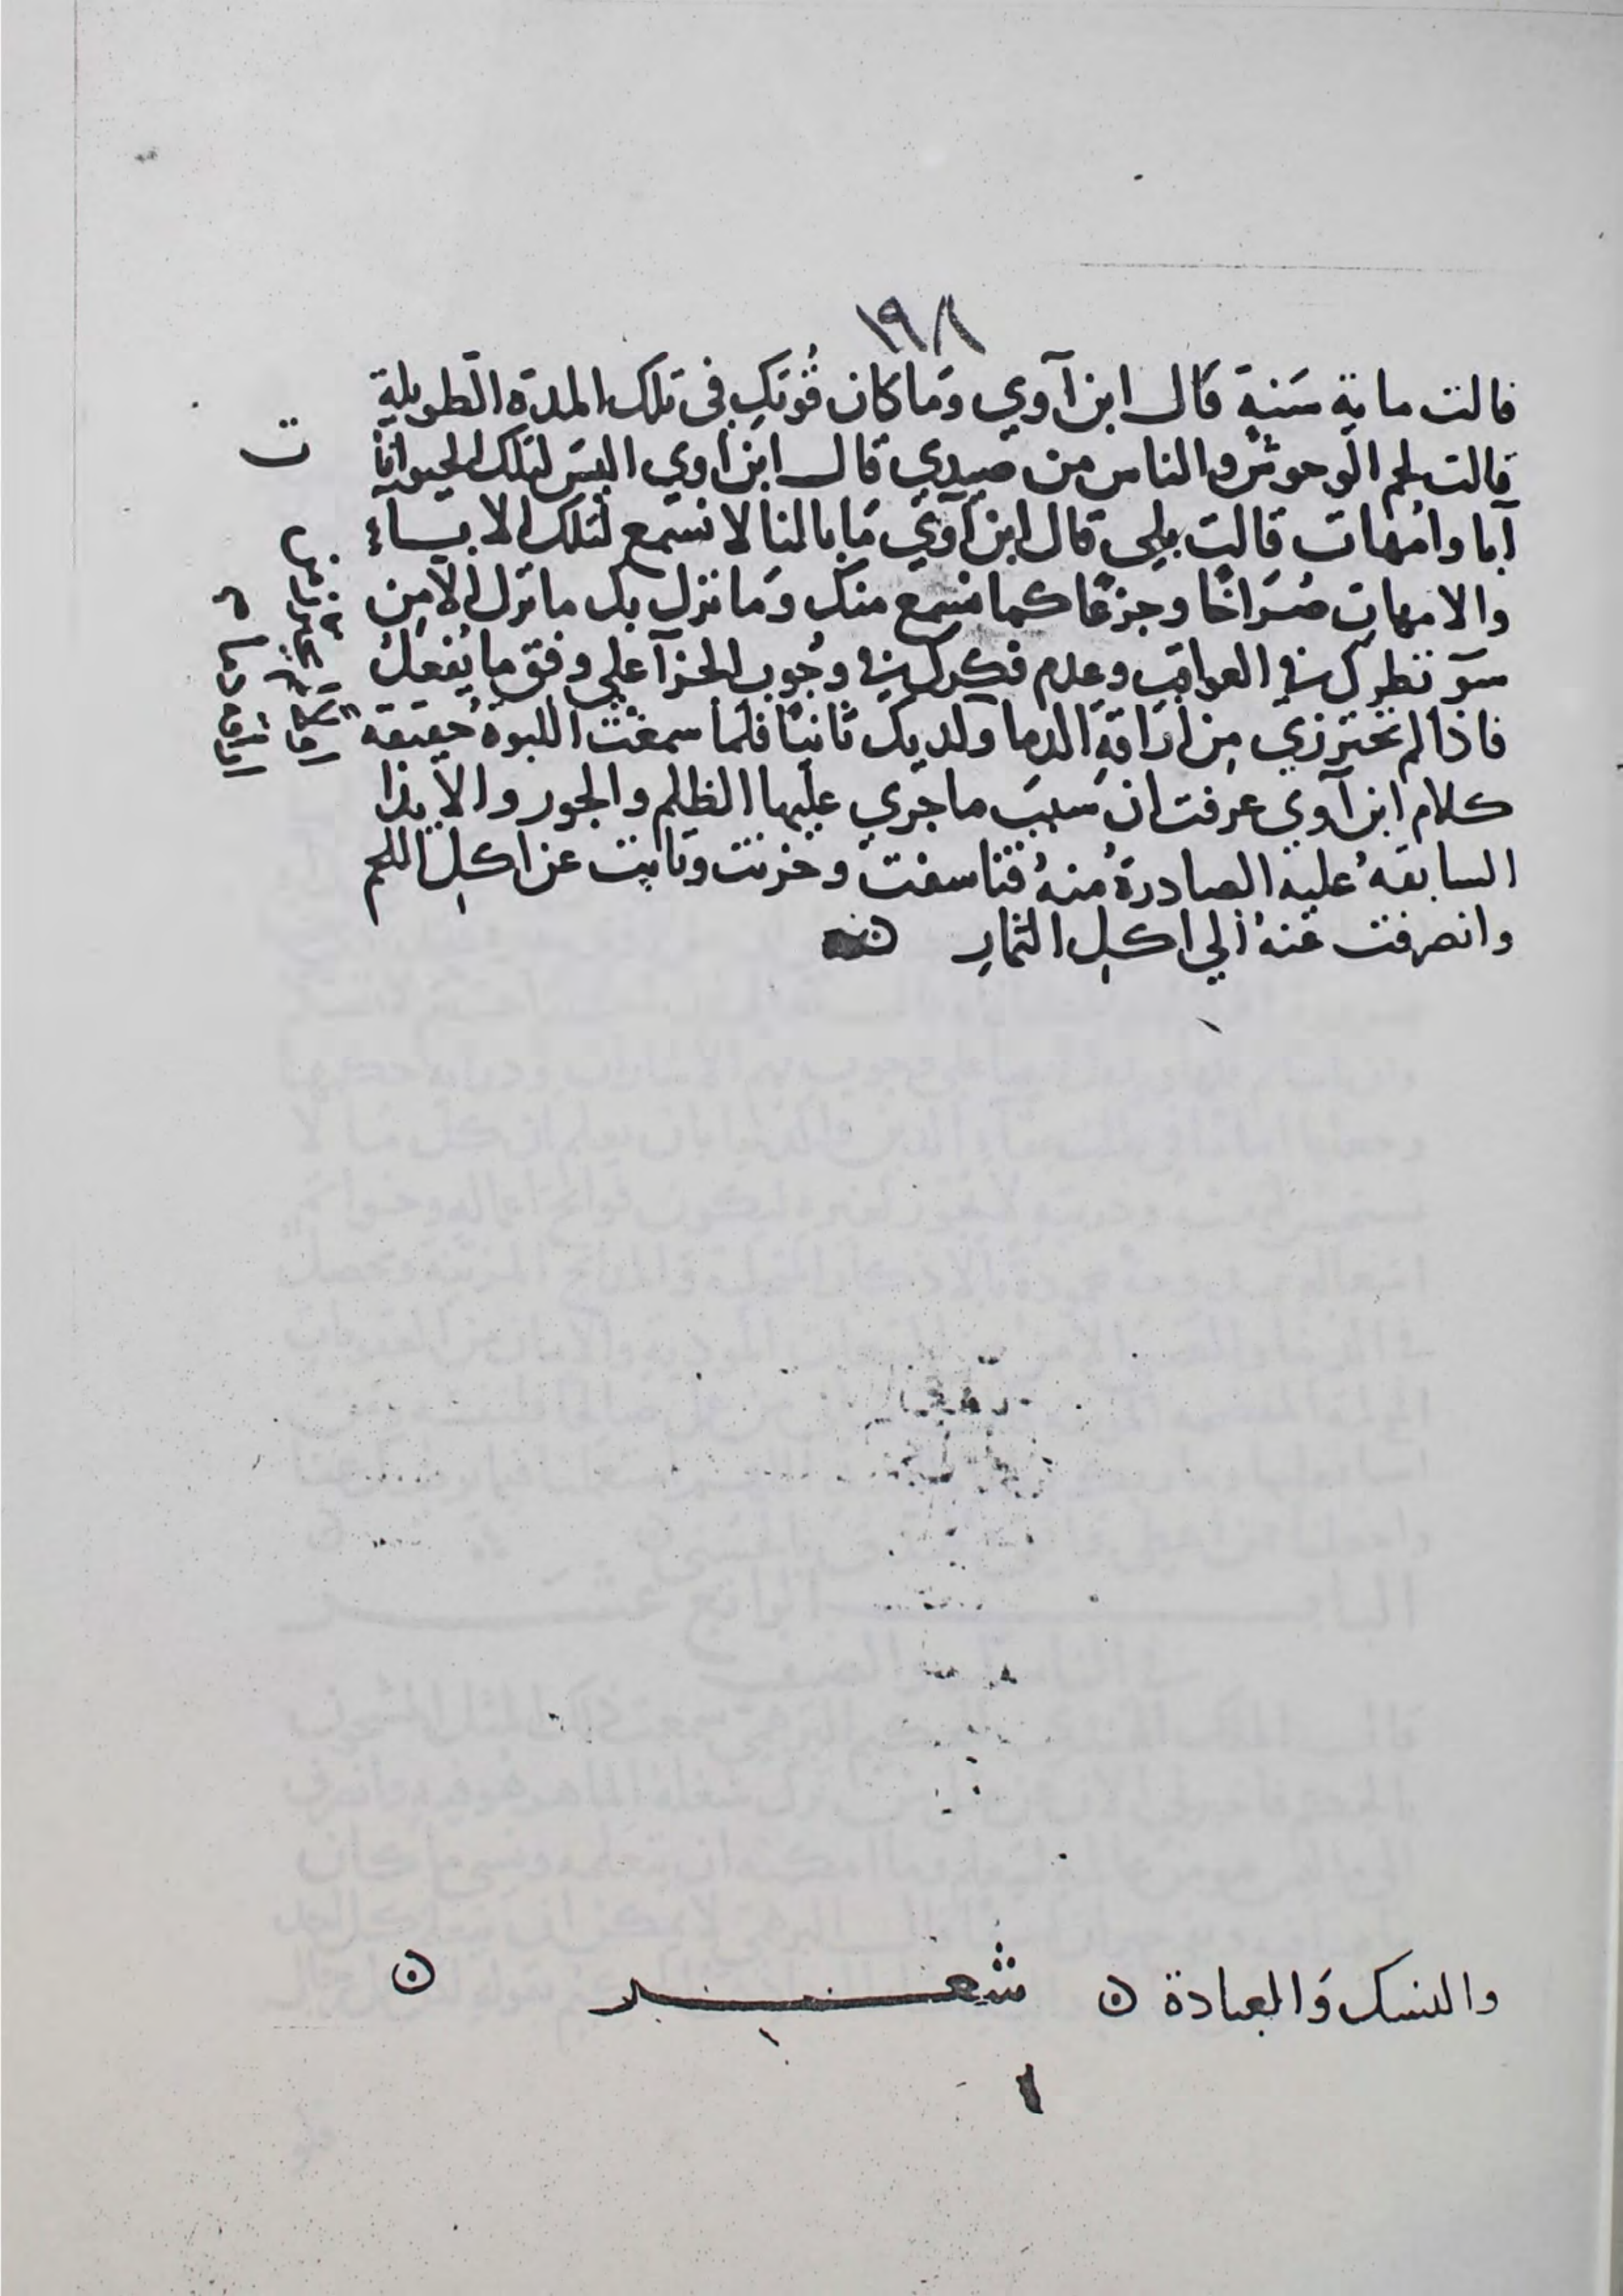 ١٩٨
قالت ماية سَنةٍ قَال ابن آوي وَما كان قُوتكِ في تلك المدة الطويلة
قالت لحم الوحوش والناس من صيدي قال ابن آوي اليسَ لتلك الحيوانا
ت
آبا وامهات قالت بلي قال ابن آوي مَا بالنا لا نسمع لتلك الاباء
والامهات صُرَاخًا وجزعًا كما نسمع منك وَما نزل بك ما نزل الا من
سوّ نظرك في العواقب وعدم فكرك في وجُوب الجزآ علي وفق ما يُفعلُ
فاذا لم تحترزي مِن اراقةِ الدما ولديك ثانيًا فلما سمعَت اللبوة حقيقة
كلام ابن آوي عرفت ان سَببَ ما جري عليها الظلم والجور والايذا
السابقهُ عليه الصادرةُ منهُ فتاسفت وحزنت وتابت عن اكلِ اللحم
وانصرفت عَنهُ الي اكلِ الثمارِ
والنسك وَالعبادة ۞ شعــــر ۞